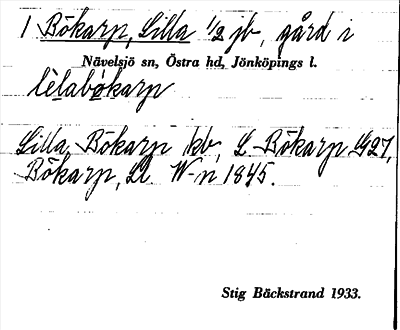 1 Bökarp, Lilla 1/2 jb, gård i
Nävelsjö sn, Östra hd, Jönköpings l.
lèlabökarp
Lilla Bökarp kb, L. Bökarp G27,
Bökarp, Ll. W-n 1845.
Stig Bäckstrand 1933.